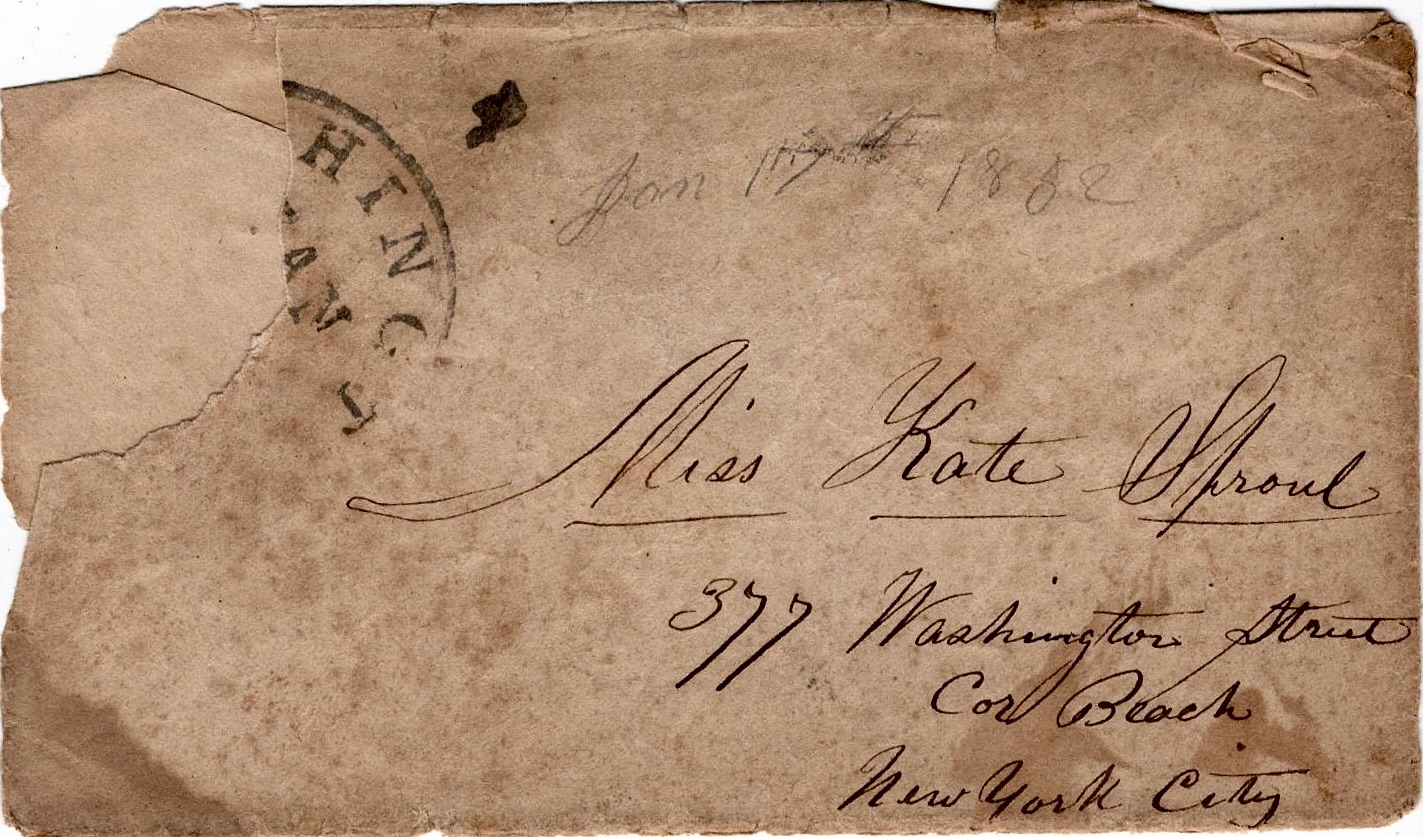 HING
AN
Jan 1862
Miss Kate Sproul
377 Washington Street
Cor Beach
New York City